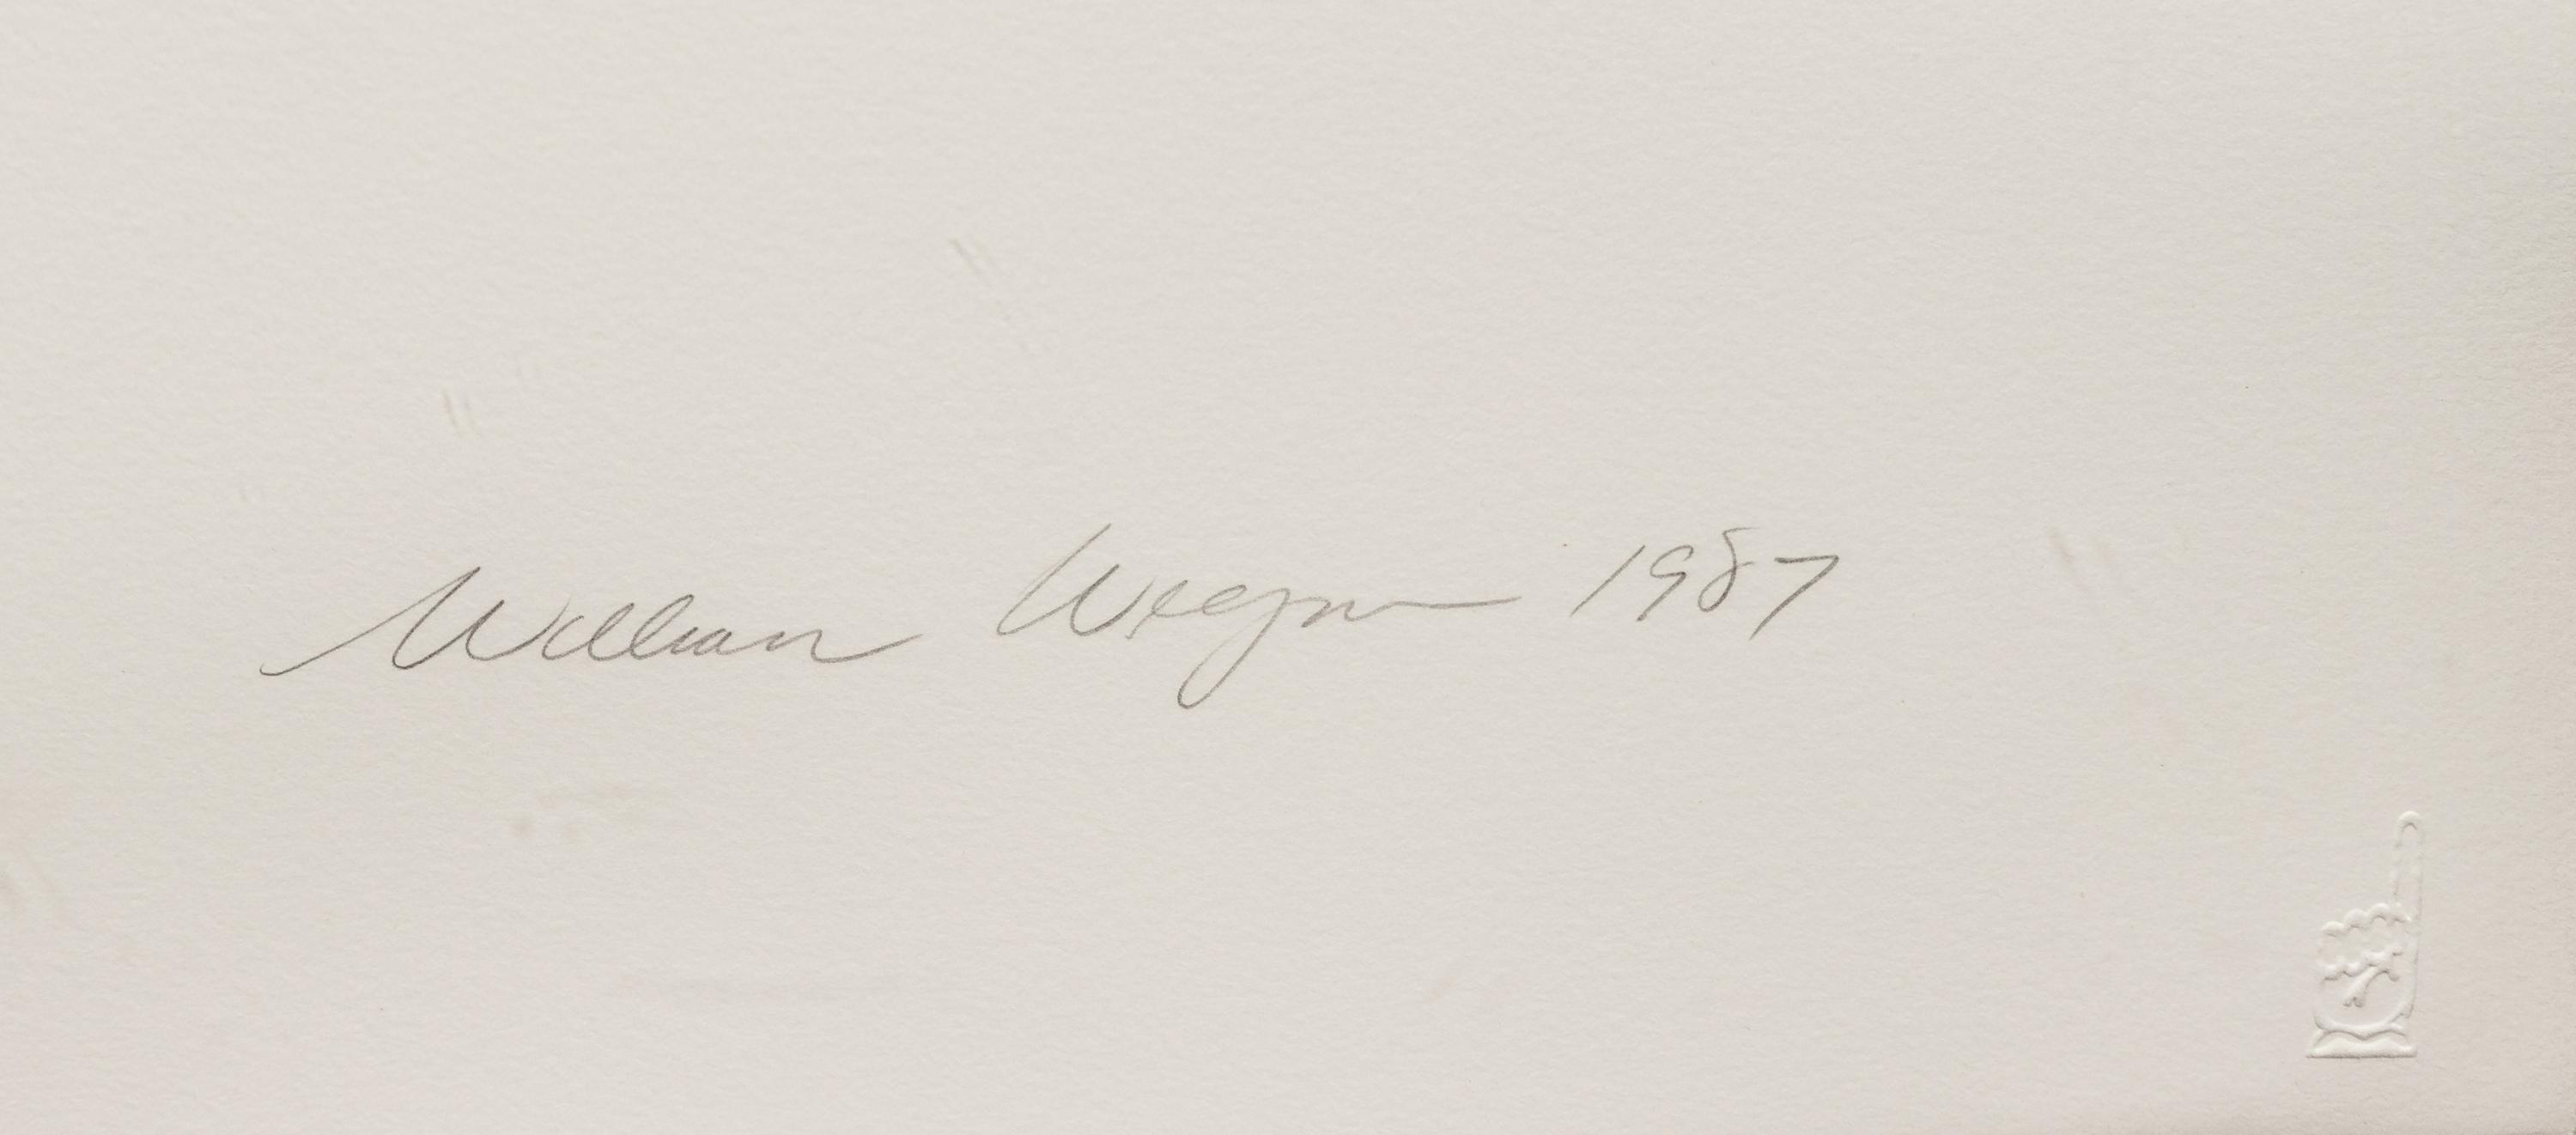 William Wegman 1987